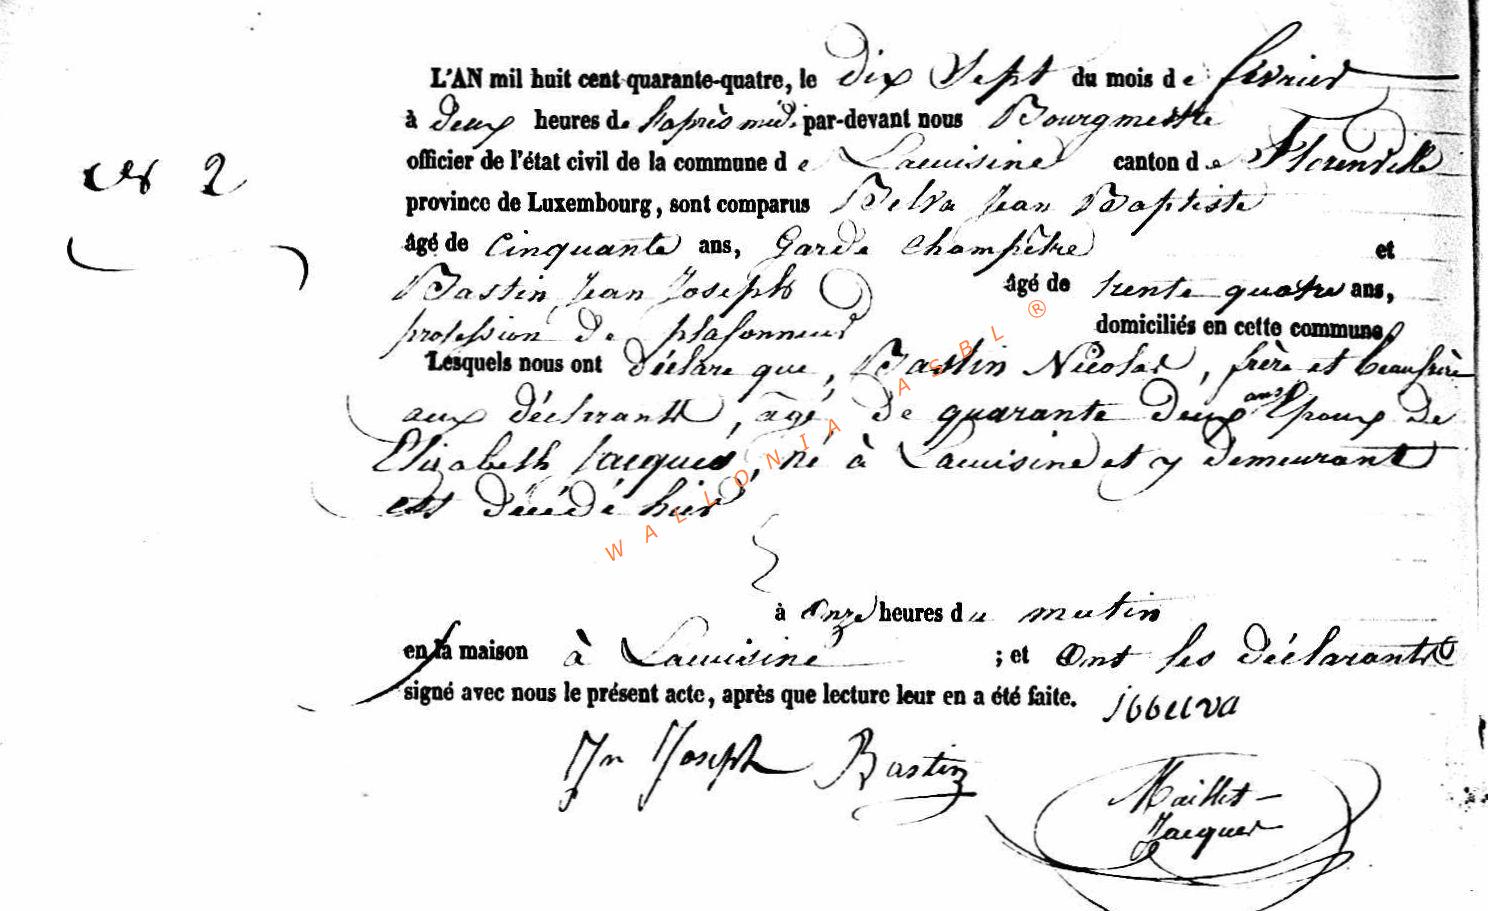 L'AN mil huit cent quarante-quatre, le dix Sept du mois de février
à deux heures de l'après midi par-devant nous Bourgmestre
officier de l'état civil de la commune de Lacuisine canton de Florenville
N° 2
province de Luxembourg, sont comparus Belva Jean Baptiste
âgé de Cinquante ans, Garde Champêtre et
Bastin Jean Joseph âgé de trente quatre ans,
profession de plafonneur domiciliés en cette commune,
Lesquels nous ont déclaré que, Bastin Nicolas, frère et beaufrère
aux déclarants, âgé de quarante deux ans Epoux de
Elizabeth Jacques, né à Lacuisine et y demeurant
est décédé hier
à onze heures du matin
en la maison à Lacuisine ; et ont les déclarants
signé avec nous le présent acte, après que lecture leur en a été faite. jbbelva
Jn Joseph Bastin
Maillet-
Jacques
WALLONIA ASBL ®